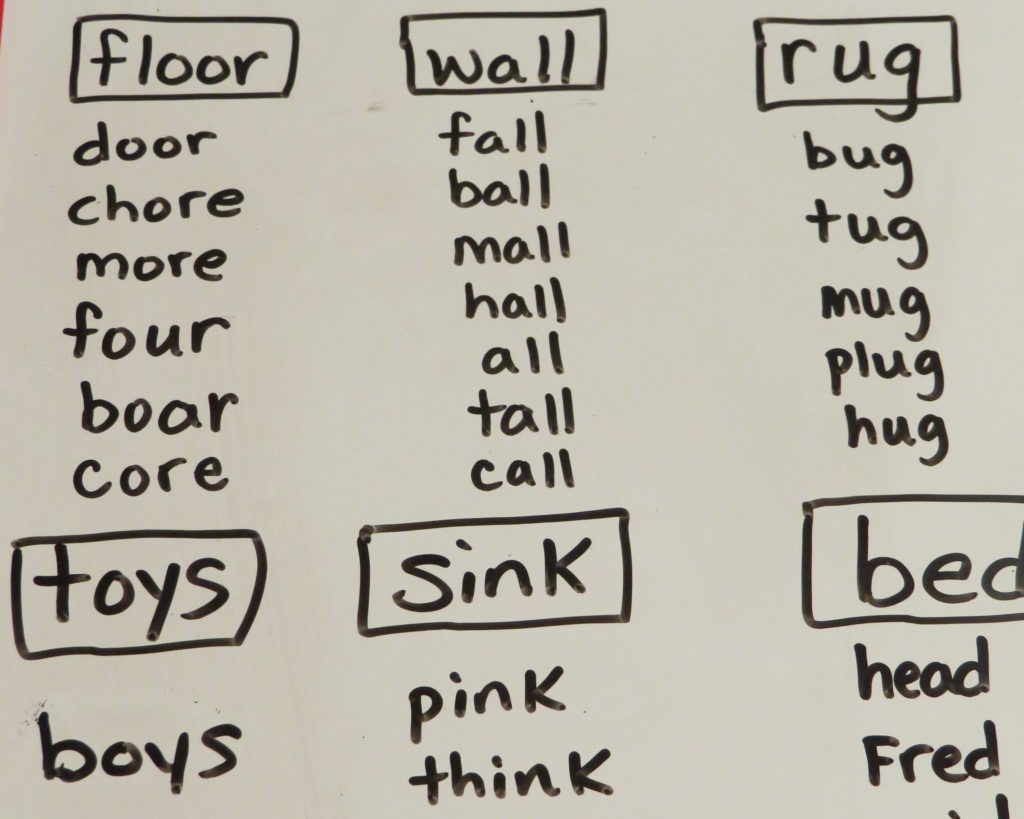 floor
door
chore
more
four
boar
core
wall
fall
ball
mall
hall
all
tall
call
rug
bug
tug
mug
plug
hug
toys
boys
sink
pink
think
bed
head
Fred